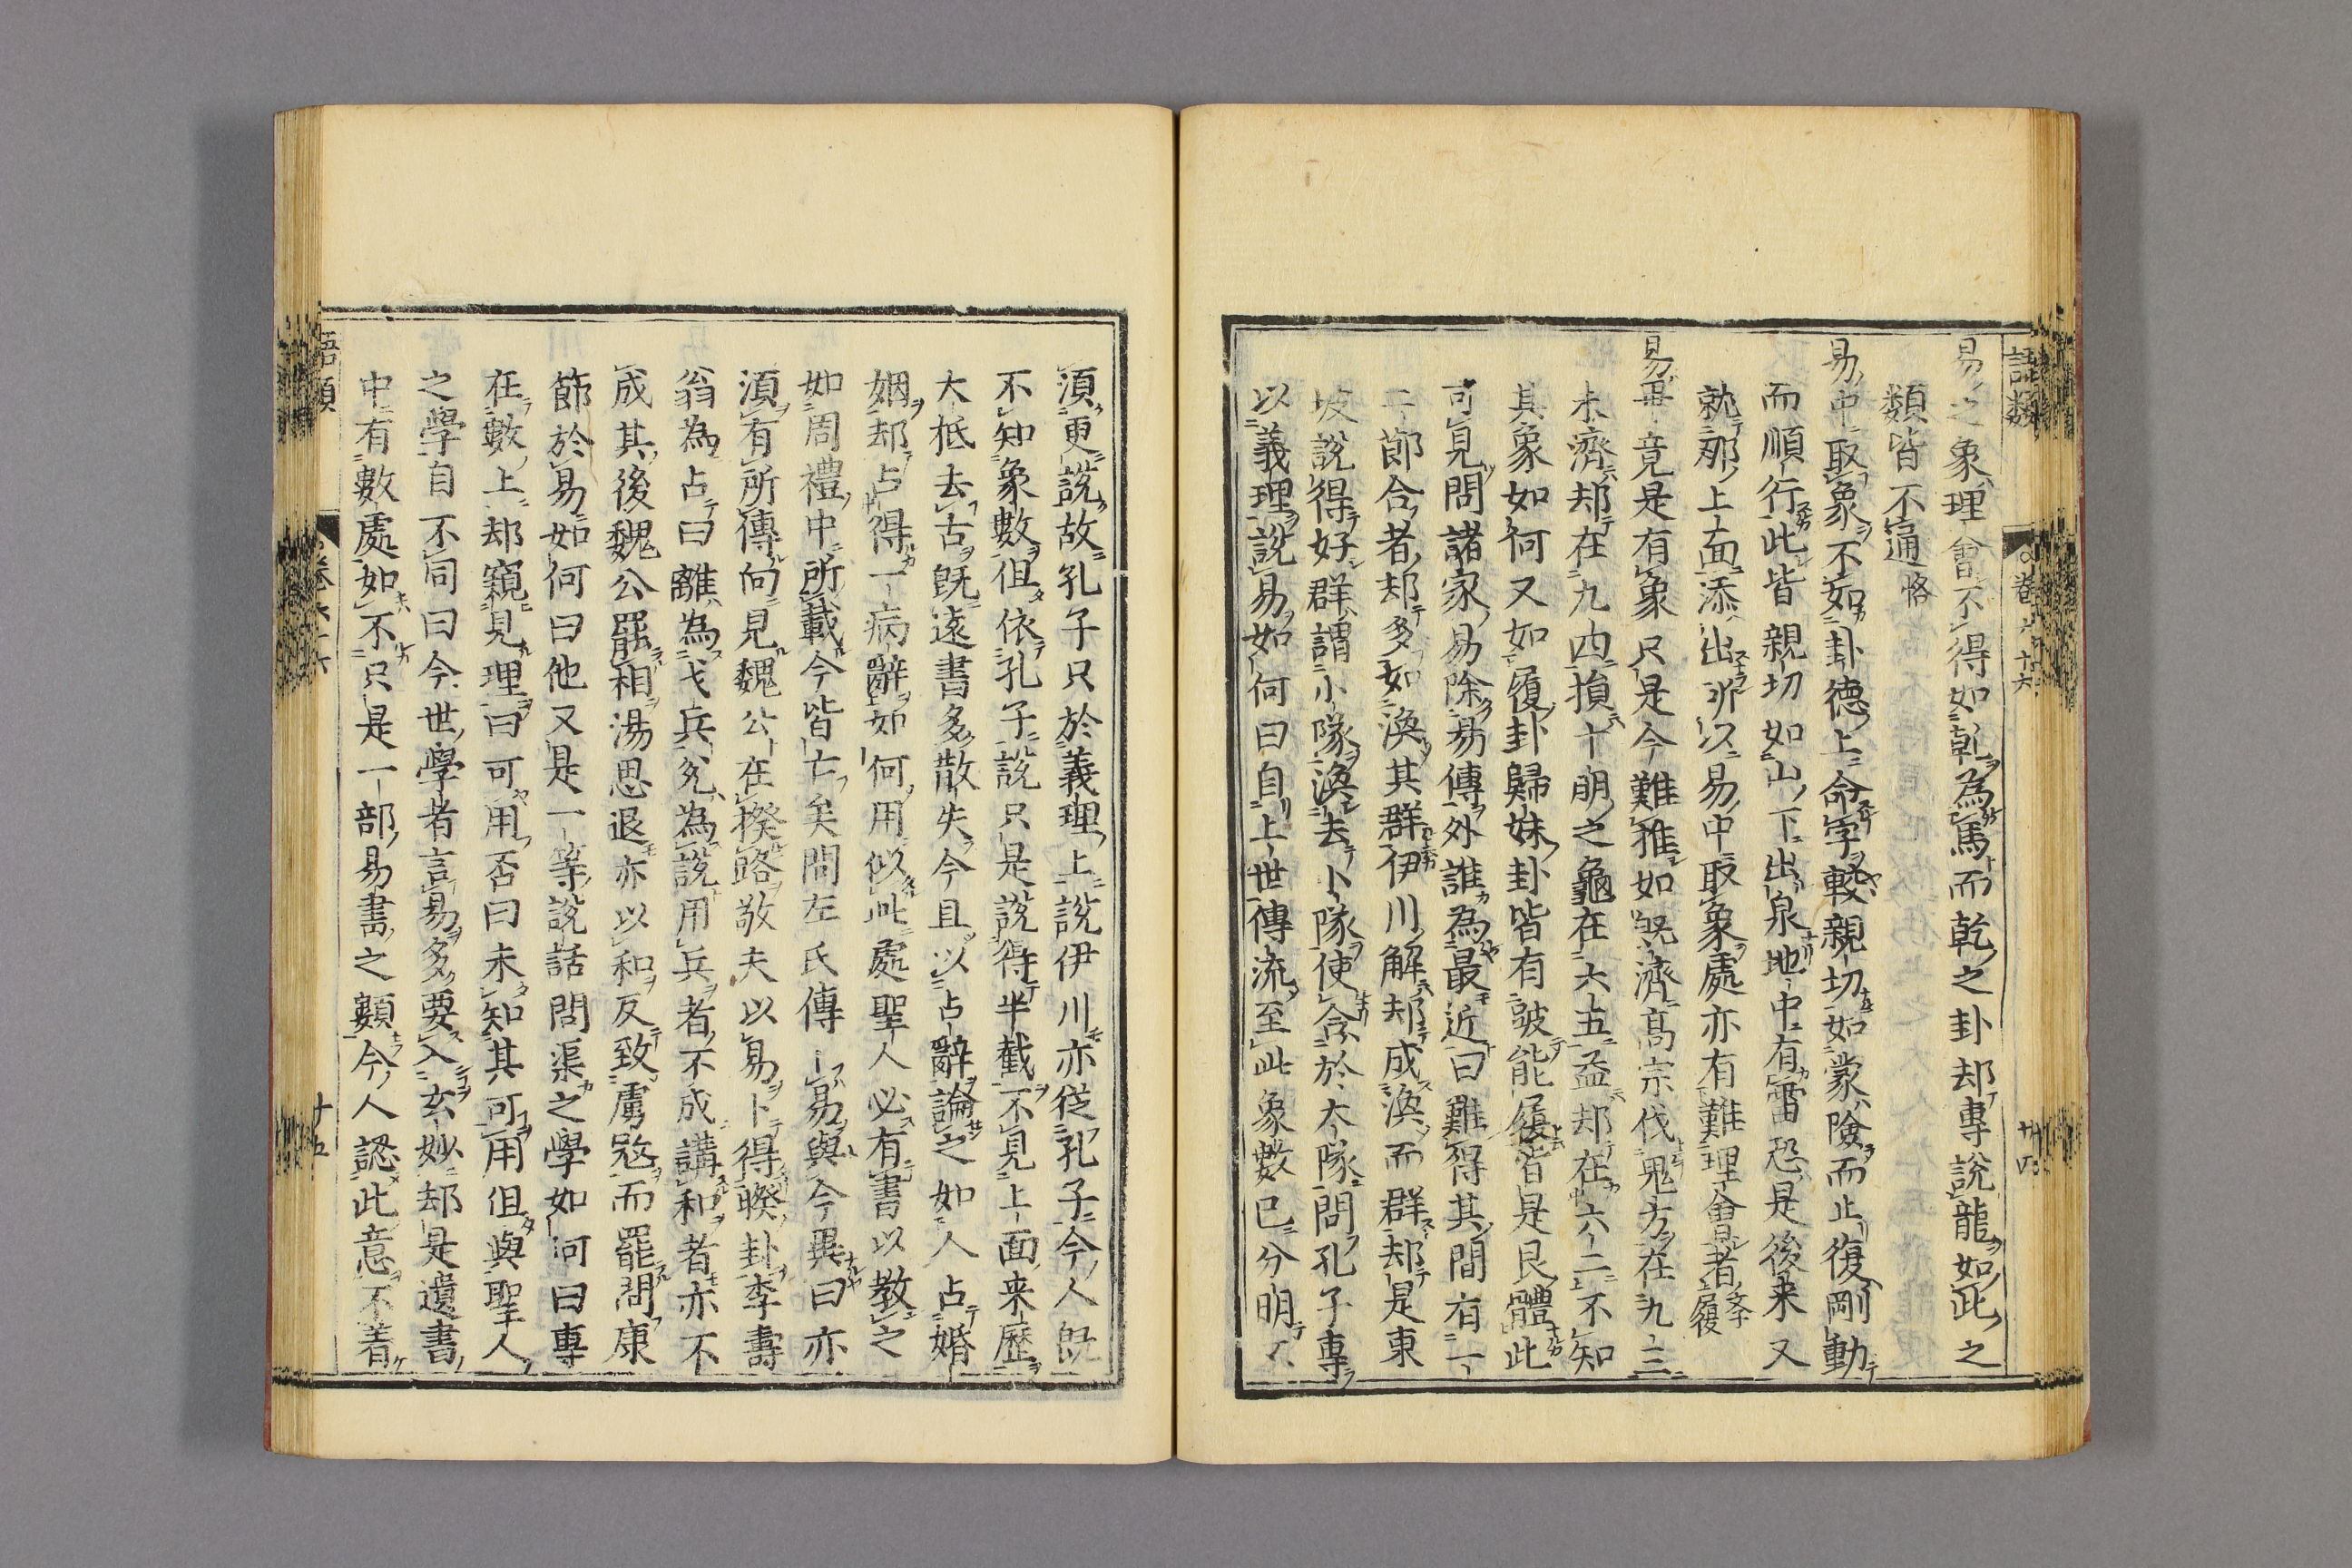 語類
卷六十六
廿四
易之象理會不得如乾為馬而乾之卦却專說龍如此之
類皆不通恪
易中取象不如卦德上命字較親切如蒙險而止復剛動
而順行此皆親切如山下出泉地中有雷恐是後来又
就那上面添出所以易中取象處亦有難理會者文蔚履
易畢竟是有象只是今難推如既濟高宗伐鬼方在九三
未濟却在九四損十朋之龜在六五益却在六二不知
其象如何又如履卦歸妹卦皆有跛能履皆是艮體此
可見問諸家易除易傳外誰為最近曰難得其間有一
二節合者却多如渙其群伊川解却成渙而群却是東
坡說得好群謂小隊渙去小隊使合於大隊問孔子專
以義理說易如何曰自上世傳流至此象數已分明不
須更說故孔子只於義理上說伊川亦從孔子今人既
不知象數但依孔子說只是說得半截不見上面来歷
大抵去古既遠書多散失今且以占辭論之如人占婚
姻却占得一病辭如何用似此處聖人必有書以教之
如周禮中所載今皆亡矣問左氏傳易與今異曰亦
須有所傳向見魏公在揆路敬夫以易卜得睽卦李壽
翁為占曰離為戈兵兌為說用兵者不成講和者亦不
成其後魏公罷相湯思退亦以和反致虜寇而罷問康
節於易如何曰他又是一等說話問渠之學如何曰專
在數上却窺見理曰可用否曰未知其可用但與聖人
之學自不同曰今世學者言易多要入玄妙却是遺書
中有數處如不只是一部易書之類今人認此意不着
語類
卷六十六
十五